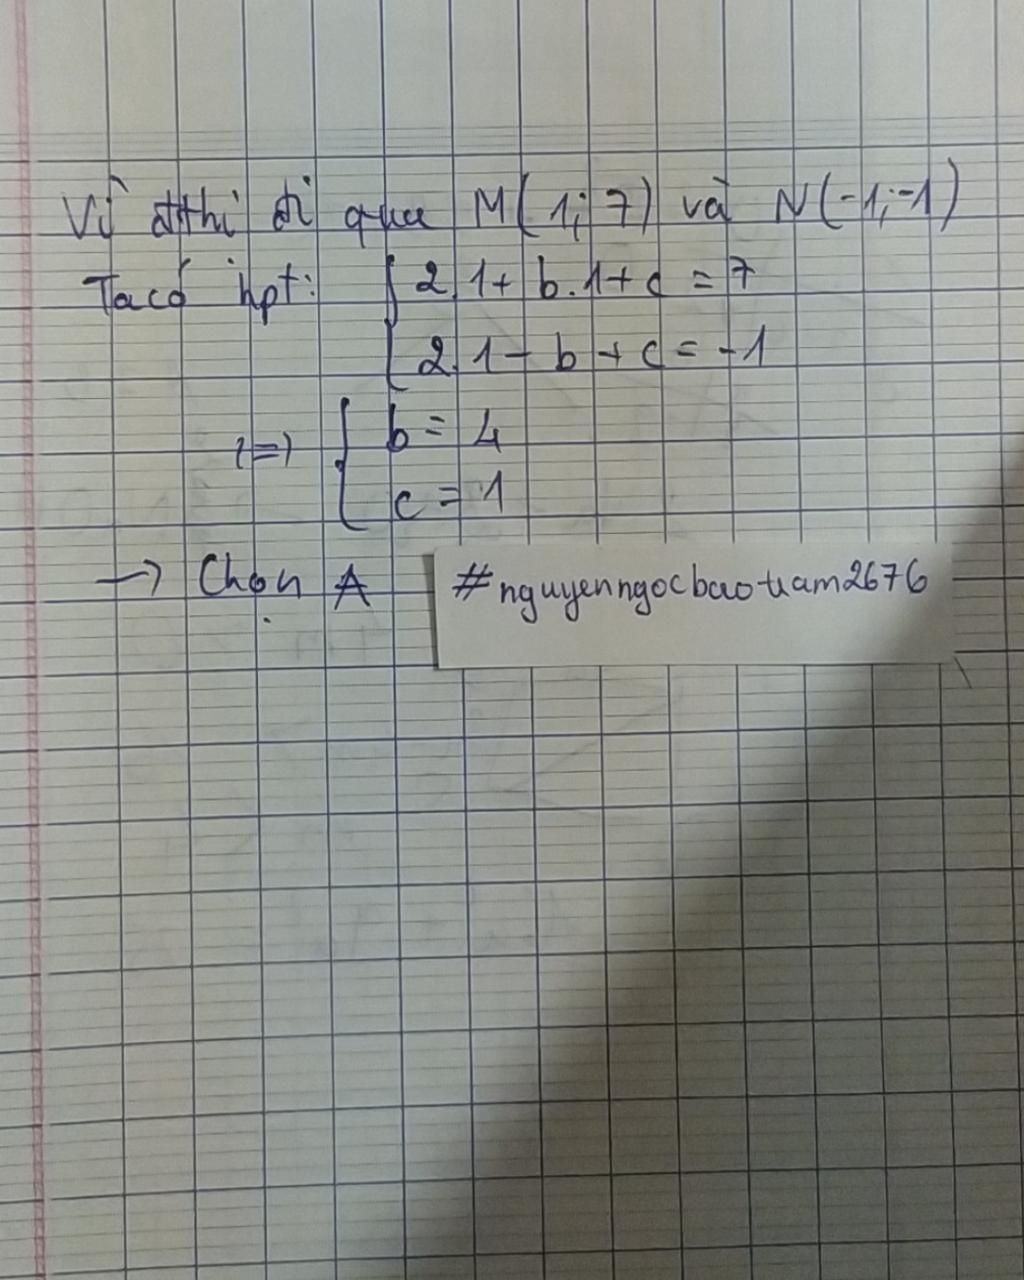 Vì đthị đi qua M(1; 7) và N(-1; -1)
Ta có hpt: { 2.1 + b.1 + c = 7
{ 2.1 - b + c = -1
<=> { b = 4
{ c = 1
→ Chọn A
#nguyenngocbaotram2676